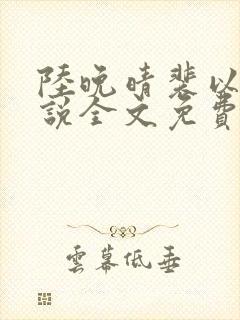 陸晚晴裴以
說全文免費
雲幕低垂